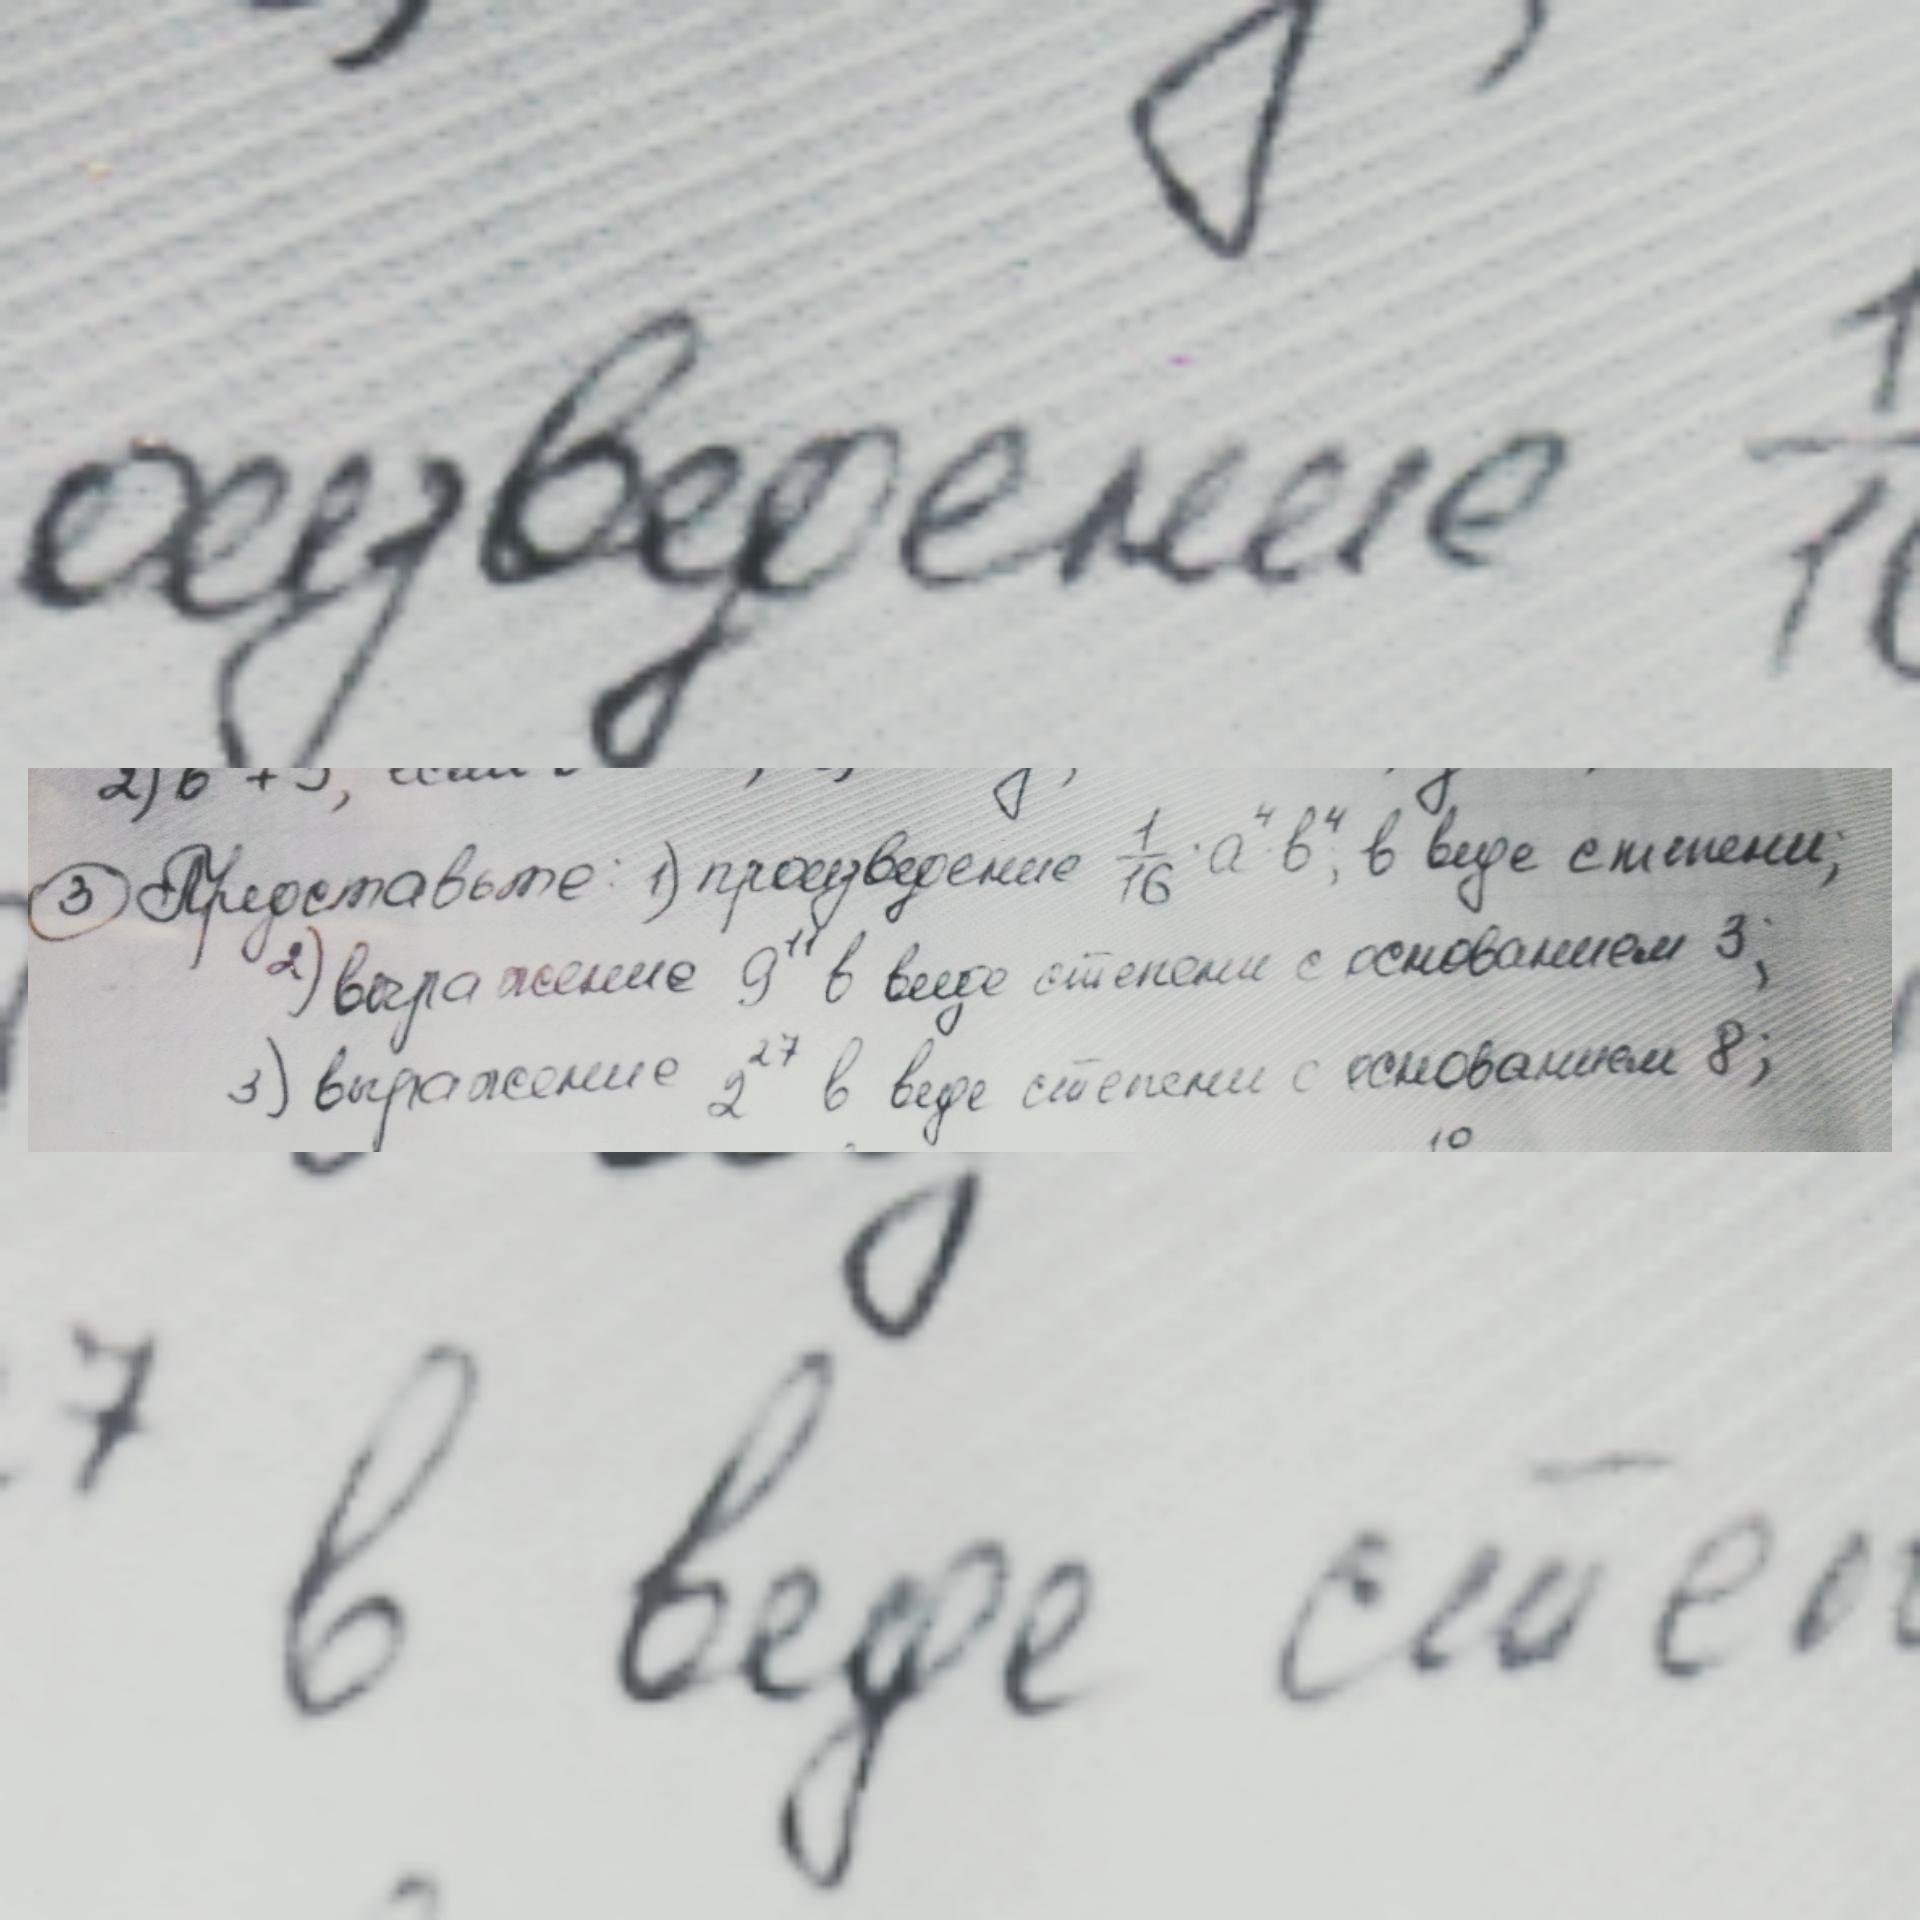 оизведение 1
2) в + 3, если
③ Представьте: 1) произведение 1/16 · a⁴ · b⁴, в виде степени;
2) выражение 9¹¹ в виде степени с основанием 3;
3) выражение 2²⁷ в виде степени с основанием 8;
10
7 в виде степ